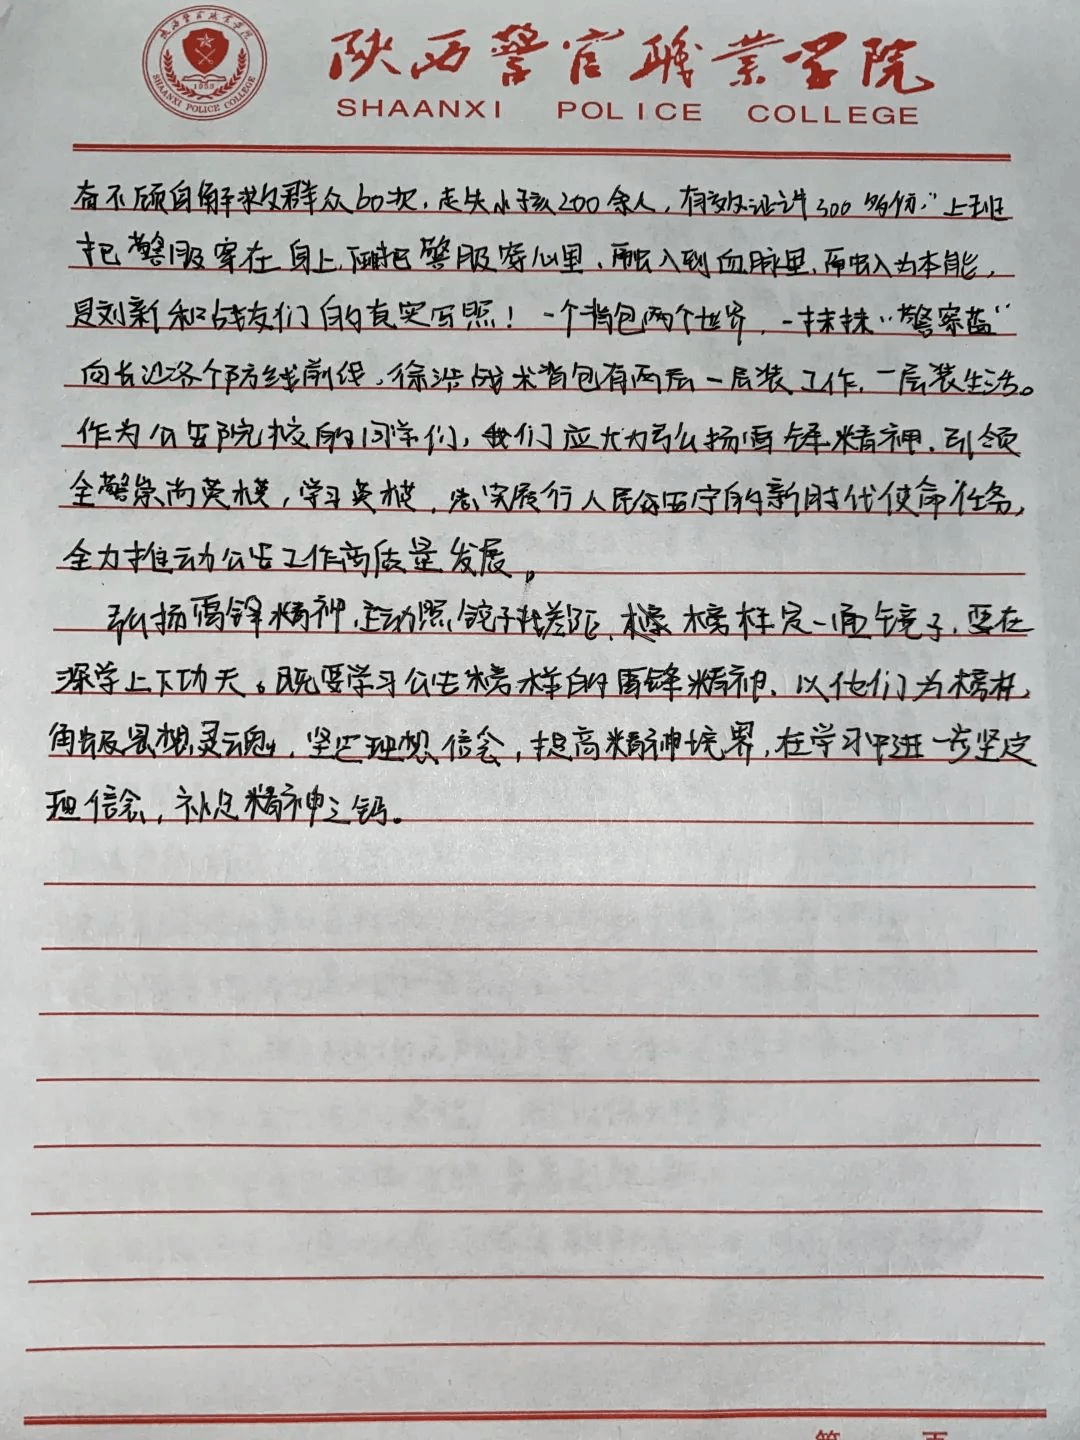 陕西警官职业学院
SHAANXI POLICE COLLEGE
陕西警官职业学院
SHAANXI POLICE COLLEGE
1953
奋不顾自解救群众60次,走失小孩200余人,有效证件300多份,"上班
把警服穿在身上,下班把警服穿心里、融入到血脉里,融入为本能,
是刘新和战友们的真实写照!一个背包两个世界,一抹抹"警察蓝"
向长边各个防线前线,徐洪战术背包有两层一层装工作,一层装生活。
作为公安院校的同学们,我们应大力弘扬雷锋精神,引领
全警崇尚英模,学习英模,忠实履行人民公安的新时代使命任务,
全力推动公安工作高质量发展。
弘扬雷锋精神,主动照镜子找差距,榜样是一面镜子,要在
深学上下功夫。既要学习公安榜样的雷锋精神,以他们为榜样,
思想灵魂,坚定理想信念,提高精神境界,在学习中进一步坚定
理信念,补足精神之钙。
第 页